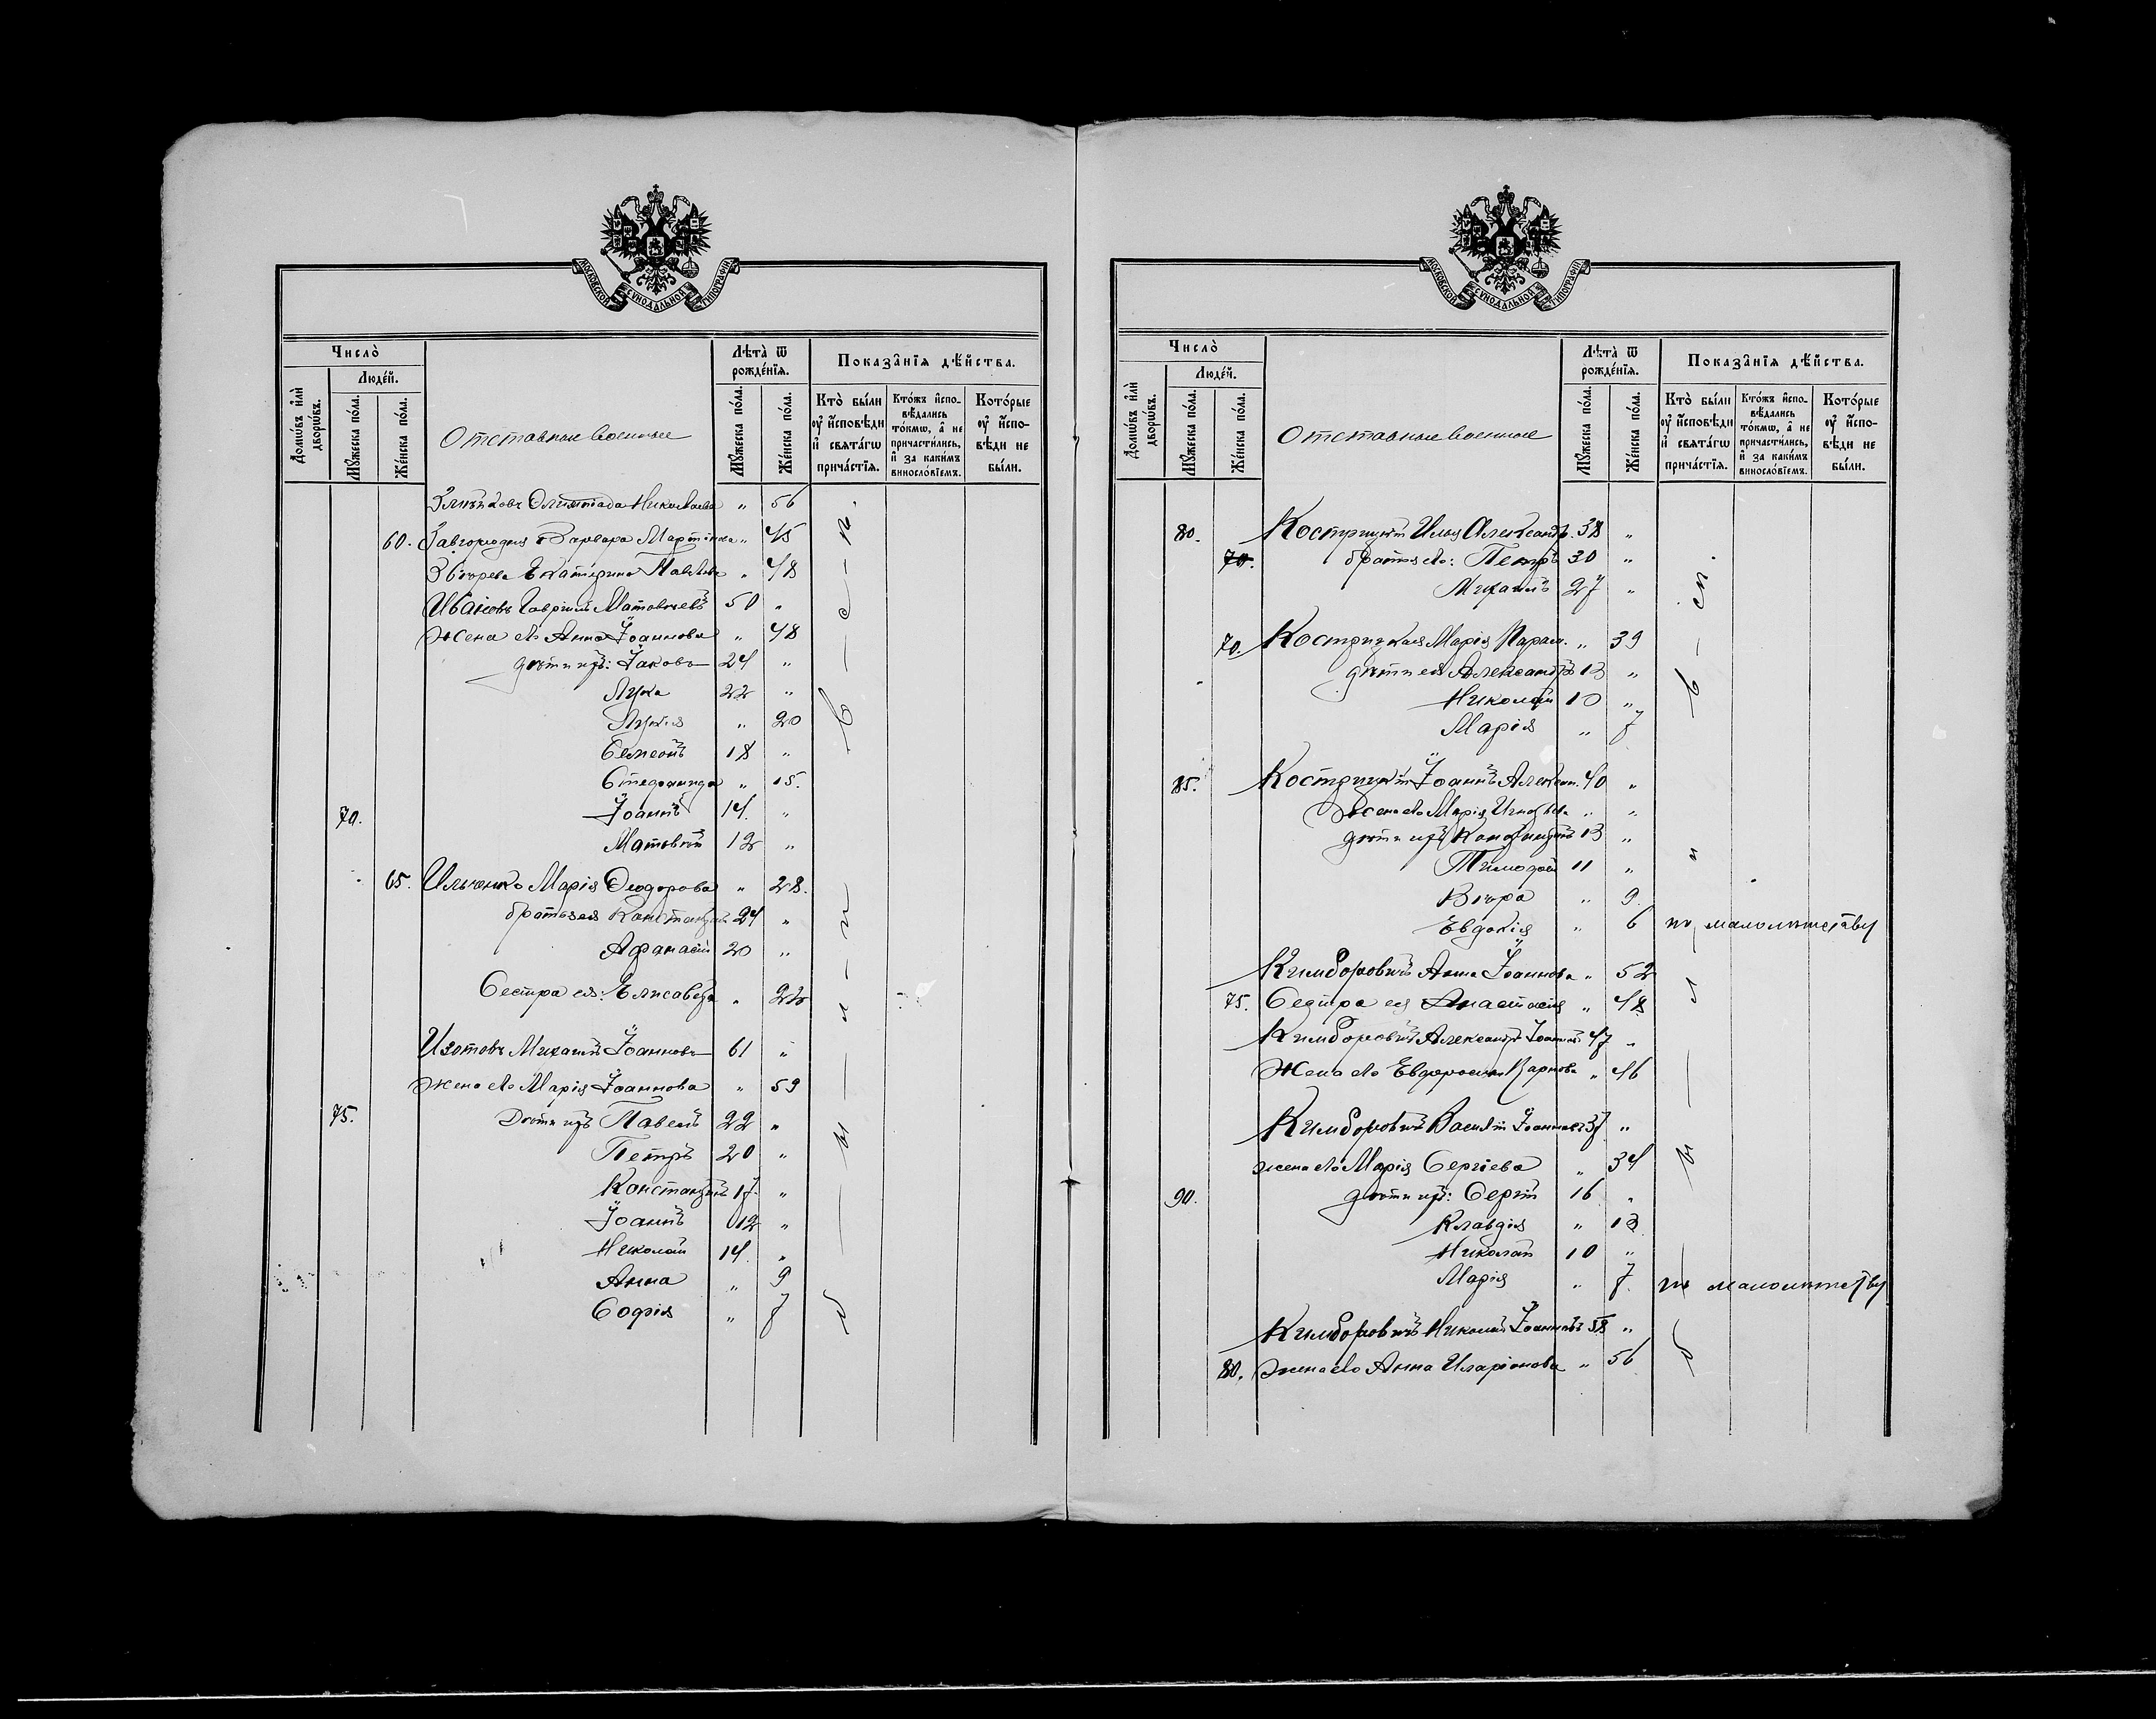 МОСКОВСКОЙ СѴНОДАЛЬНОЙ ТИПОГРАФІИ
Число̀
Домѡ́въ и҆лѝ дворѡ́въ.
Люде́й.
Мꙋ́жеска по́ла.
Же́нска по́ла.
Отставные военные
Лѣ́та ѿ рожде́нїѧ.
Мꙋ́жеска по́ла.
Же́нска по́ла.
Показа̑нїѧ дѣ́йства.
Кто̀ бы́ли ᲂу҆ и҆́сповѣди и҆ свѧта́гѡ прича́стїѧ.
Кто́жъ и҆спо-вѣ́дались то́кмѡ, а҆ не причасти́лись, и҆ за каки́мъ виносло́вїемъ.
Кото́рые ᲂу҆ и҆спо-вѣди не бы́ли.
Олимпіада Николаева „ 56
60. Завгородняя Варвара Мартинова „ 45
Екатерина Павлова „ 48
Ивановъ Гавріилъ Матѳѣевъ 50 „
Жена его Анна Іоаннова „ 48
дѣти ихъ: Іаковъ 24 „
Лука 22 „
Лукія „ 20
Семеонъ 18 „
Стефанида „ 15.
70. Іоаннъ 14. „
Матѳѣй 12 „
65. Ильченко Марія Ѳеодорова „ 28.
братья ея Константинъ 24 „
Афанасій 20 „
Сестра ея: Елисавета „ 22
Изотовъ Михаилъ Іоанновъ 61 „
жена его Марія Іоаннова „ 59
75. Дѣти ихъ Павелъ 22 „
Петръ 20 „
Константинъ 17. „
Іоаннъ 12 „
Николай 14. „
Анна „ 9
Софія „ 7
МОСКОВСКОЙ СѴНОДАЛЬНОЙ ТИПОГРАФІИ
Число̀
Домѡ́въ и҆лѝ дворѡ́въ.
Люде́й.
Мꙋ́жеска по́ла.
Же́нска по́ла.
Отставные военные
Лѣ́та ѿ рожде́нїѧ.
Мꙋ́жеска по́ла.
Же́нска по́ла.
Показа̑нїѧ дѣ́йства.
Кто̀ бы́ли ᲂу҆ и҆́сповѣди и҆ свѧта́гѡ прича́стїѧ.
Кто́жъ и҆спо-вѣ́дались то́кмѡ, а҆ не причасти́лись, и҆ за каки́мъ виносло́вїемъ.
Кото́рые ᲂу҆ и҆спо-вѣди не бы́ли.
80. Кострицкій Илья Александр. 38 „
70. братья его: Петръ 30 „
Михаилъ 27 „
70. Кострицкая Марія Парам. „ 39
дѣти ея Александръ 13 „
Николай 10 „
Марія „ 7
85. Кострицкій Іоаннъ Алексан. 40 „
Жена его Марія „ „
дѣти ихъ Константинъ 13 „
Тимофей 11 „
Вѣра „ 9.
Евдокія „ 6 по малолѣтству
Кимборовичъ Анна Іоаннова „ 52
75. Сестра ея Анастасія „ 48
Кимборовичъ Александръ Іоанновъ 47 „
Жена его Евфросинія Карпова „ 46
Кимборовичъ Василій Іоанновъ 37 „
жена его Марія Сергіева „ 34
90. дѣти ихъ: Сергій 16 „
Клавдія „ 13
Николай 10 „
Марія „ 7. по малолѣтству
Кимборовичъ Николай Іоанновъ 58 „
80. Жена его Анна Иларіонова „ 56